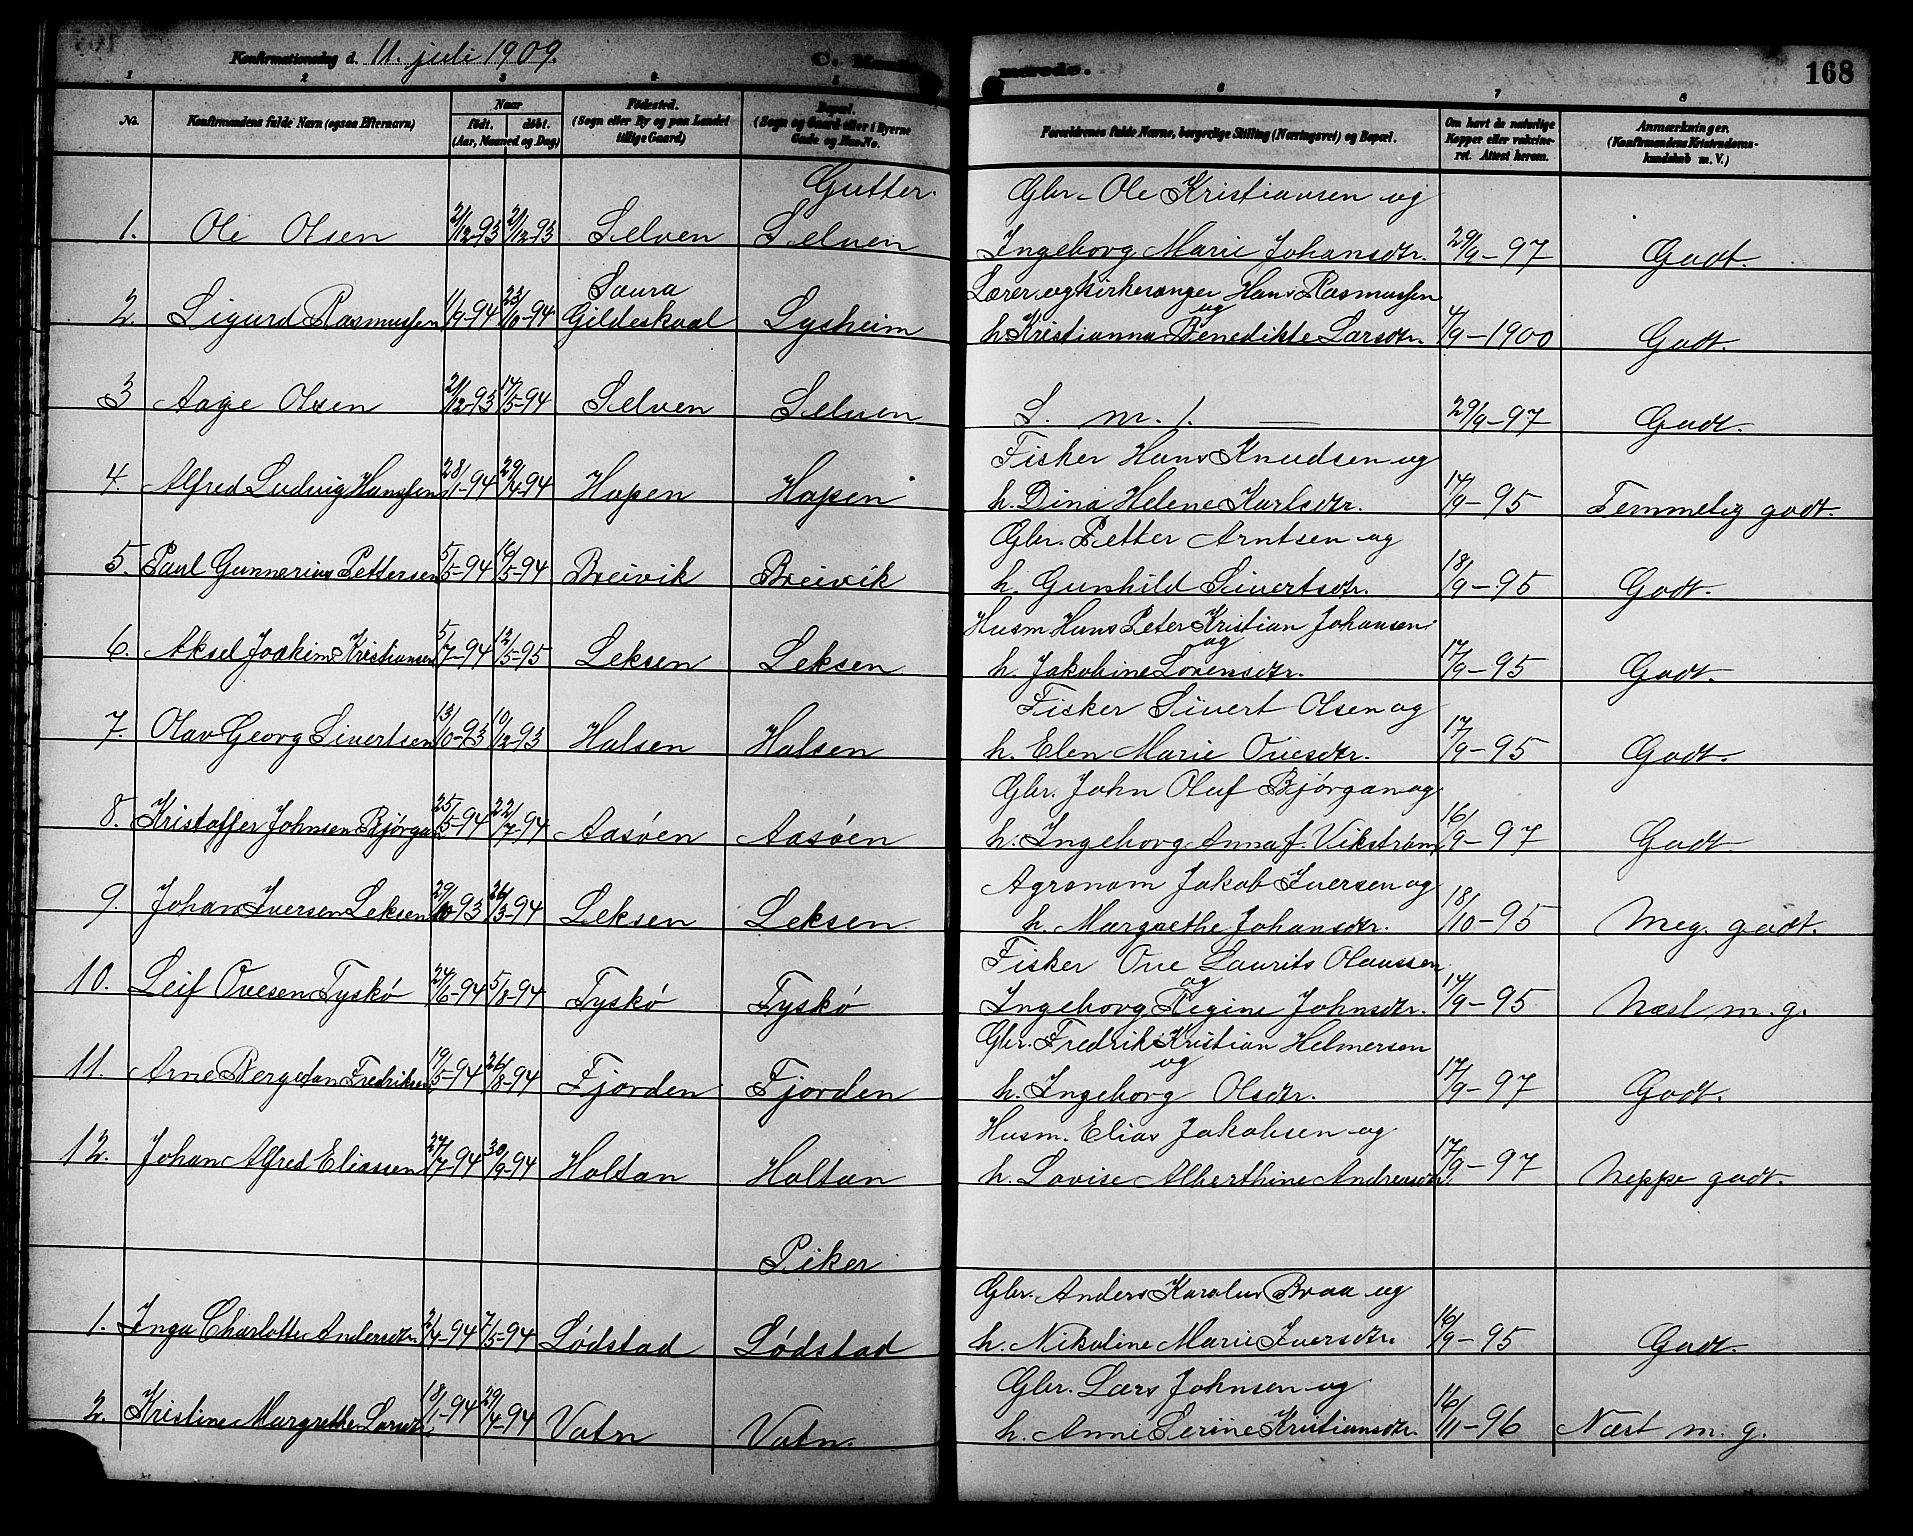 Konfirmationsdag d. 11. juli 1909.
168
1 2 3 4 5 6 7 8
No.
Konfirmandens fulde Navn (ogsaa Efternavn)
Naar
født. døbt.
(Aar, Maaned og Dag)
Fødested.
(Sogn eller By og paa Landet
tillige Gaard)
Bopæl.
(Sogn og Gaard eller i Byerne
Gade og Hus-No.
Forældrenes fulde Navne, borgerlige Stilling (Næringsvei) og Bopæl.
Om havt de naturlige
Kopper eller vakcine-
ret. Attest herom.
Anmærkninger.
(Konfirmandens Kristendoms-
kundskab m. V.)
Gutter.
Gbr. Ole Kristiansen og
1. Ole Olsen 2/12-93 21/12-93 Selven Selven Ingeborg Marie Johansdtr. 29/9-97 Godt.
Saura Lærer og kirkesanger Hans Rasmussen
og
2. Sigurd Rasmussen 11/9-94 23/10-94 Gildeskaal Lysheim h. Kristianna Benedikte Larsdtr. 4/9-1900 Godt.
3 Aage Olsen 21/12-93 17/5-94 Selven Selven S. m. 1. 29/9-97 Godt.
Fisker Hans Knudsen og
4. Alfred Ludvig Hanssen 28/1-94 29/4-94 Hopen Hopen h. Dina Helene Karlsdtr. 17/9-95 Temmelig godt.
Gbr. Petter Arntsen og
5. Paul Gunnerius Pettersen 5/5-94 16/5-94 Breivik Breivik h. Gunhild Sivertsdtr. 18/9-95 Godt.
Husm Hans Peter Kristian Johansen
og
6. Aksel Joakim Kristiansen 5/7-94 12/5-95 Leksen Leksen h. Jakobine Lorensdtr. 17/9-95 Godt.
Fisker Sivert Olsen og
7. Olav Georg Sivertsen 13/10-93 10/12-93 Halsen Halsen h. Elen Marie Ovesdtr. 17/9-95 Godt.
Gbr. John Oluf Bjørgan og
8. Kristoffer Johnsen Bjørgan 25/5-94 22/7-94 Aasøen Aasøen h. Ingeborg Anna f. Vikstrøm 16/9-97 Godt.
Agronom Jakob Iversen og
9. Johan Iversen Leksen 29/10-93 26/3-94 Leksen Leksen h. Margrethe Johansdtr. 18/10-95 Meg. godt.
Fisker Ove Laurits Olaussen
og
10. Leif Ovesen Tyskø 24/6-94 5/8-94 Tyskø Tyskø Ingeborg Regine Johnsdtr. 14/9-95 Næst m. g.
Gbr. Fredrik Kristian Helmersen
og
11. Arne Bergetan Fredriksen 19/5-94 26/8-94 Fjorden Fjorden h. Ingeborg Olsdtr. 17/9-97 Godt.
Husm. Elias Jakobsen og
12. Johan Alfred Eliassen 27/7-94 30/9-94 Holtan Holtan h. Lovise Alberthine Andreasdtr. 17/9-97 Neppe godt.
Piker
Gbr. Anders Karolus Braa og
1. Inga Charlotte Andersdtr. 2/4-94 7/5-94 Lødstad Lødstad h. Nikoline Marie Iversdtr. 16/9-95 Godt.
Gbr. Lars Johnsen og
2. Kristine Margrethe Larsdtr. 18/1-94 29/4-94 Vatn Vatn. h. Anne Serine Kristiansdtr. 16/11-96 Næst m. g.